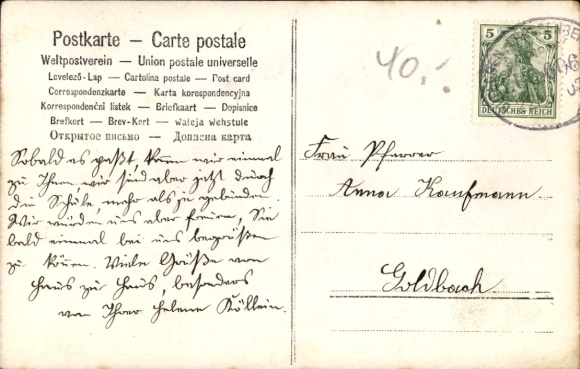 Postkarte — Carte postale
Weltpostverein — Union postale universelle
Levelező-Lap — Cartolina postale — Post card
Correspondenzkarte — Karta korespondencyjna
Korrespondenční lístek — Briefkaart — Dopisnice
Brefkort — Brev-Kort — Weteja Wehstule
Открытое письмо — Дописна карта
Sobald es paßt, kom̄en wir einmal
zu Ihnen, wir sind aber jetzt durch
die Schule, mehr als je gebunden.
Wir würden uns aber freuen, Sie
bald einmal bei uns begrüßen
zu kön̄en. Viele Grüße von
Haus zu Haus, besonders
von Ihrer Helene Köllein.
40.-
5 5
DEUTSCHES REICH
Frau Pfarrer
Anna Kaufmann
Goldbach